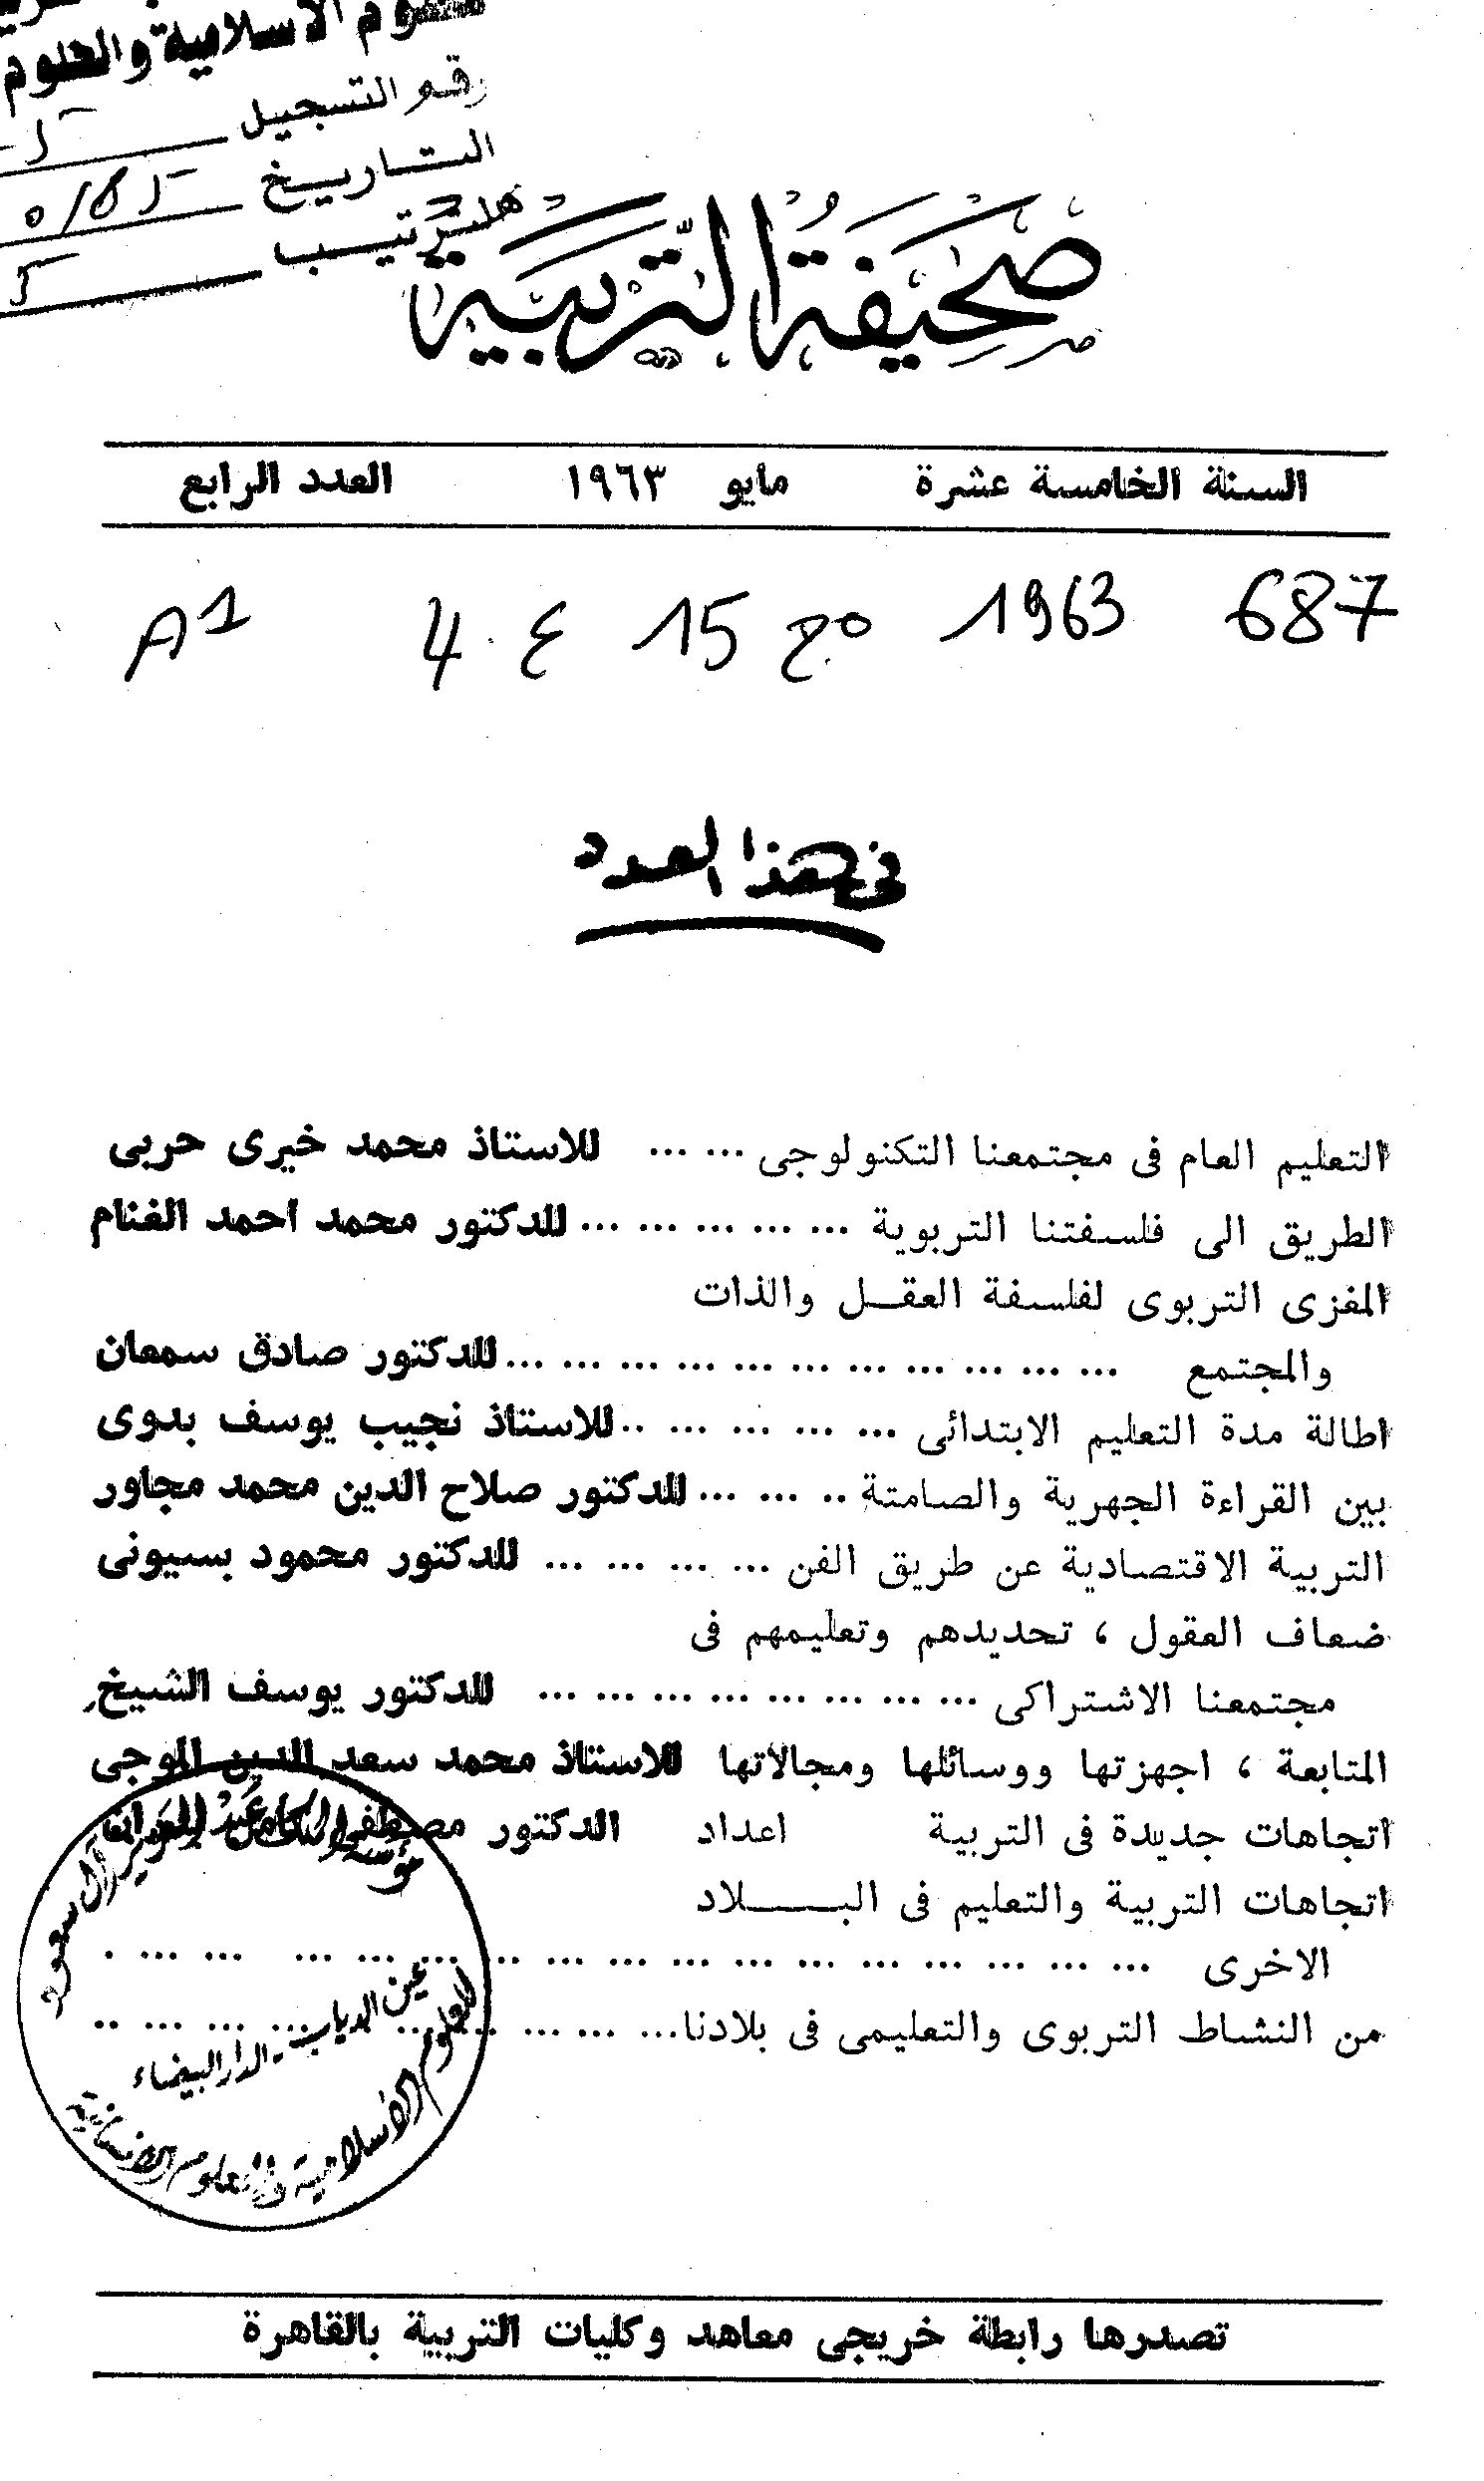 الاسلامية والعلوم
رقم التسجيل
التاريخ
الترتيب
صحيفة التربية
السنة الخامسة عشرة مايو ١٩٦٣ العدد الرابع
687 1963 مج 15 ع 4 A1
فى هذا العدد
التعليم العام فى مجتمعنا التكنولوجى ... ... للاستاذ محمد خيرى حربى
الطريق الى فلسفتنا التربوية ... ... ... ... ... للدكتور محمد احمد الغنام
المغزى التربوى لفلسفة العقل والذات
والمجتمع ... ... ... ... ... ... ... ... ... ... ... للدكتور صادق سمعان
اطالة مدة التعليم الابتدائى ... ... ... ... .. للاستاذ نجيب يوسف بدوى
بين القراءة الجهرية والصامتة .. ... ... للدكتور صلاح الدين محمد مجاور
التربية الاقتصادية عن طريق الفن ... ... ... ... للدكتور محمود بسيونى
ضعاف العقول ، تحديدهم وتعليمهم فى
مجتمعنا الاشتراكى ... ... ... ... ... ... ... ... للدكتور يوسف الشيخ
المتابعة ، اجهزتها ووسائلها ومجالاتها للاستاذ محمد سعد الدين الموجى
اتجاهات جديدة فى التربية اعداد الدكتور مصطفى
اتجاهات التربية والتعليم فى البلاد
الاخرى ... ... ... ... ... ... ... ... ... ... ... ... ... ... ... .
من النشاط التربوى والتعليمى فى بلادنا ... ... ... ... ... ... ... ... ... ..
مؤسسة الملك عبد العزيز آل سعود
عين الدياب - الدار البيضاء
للعلوم الاسلامية والعلوم الانسانية
تصدرها رابطة خريجى معاهد وكليات التربية بالقاهرة